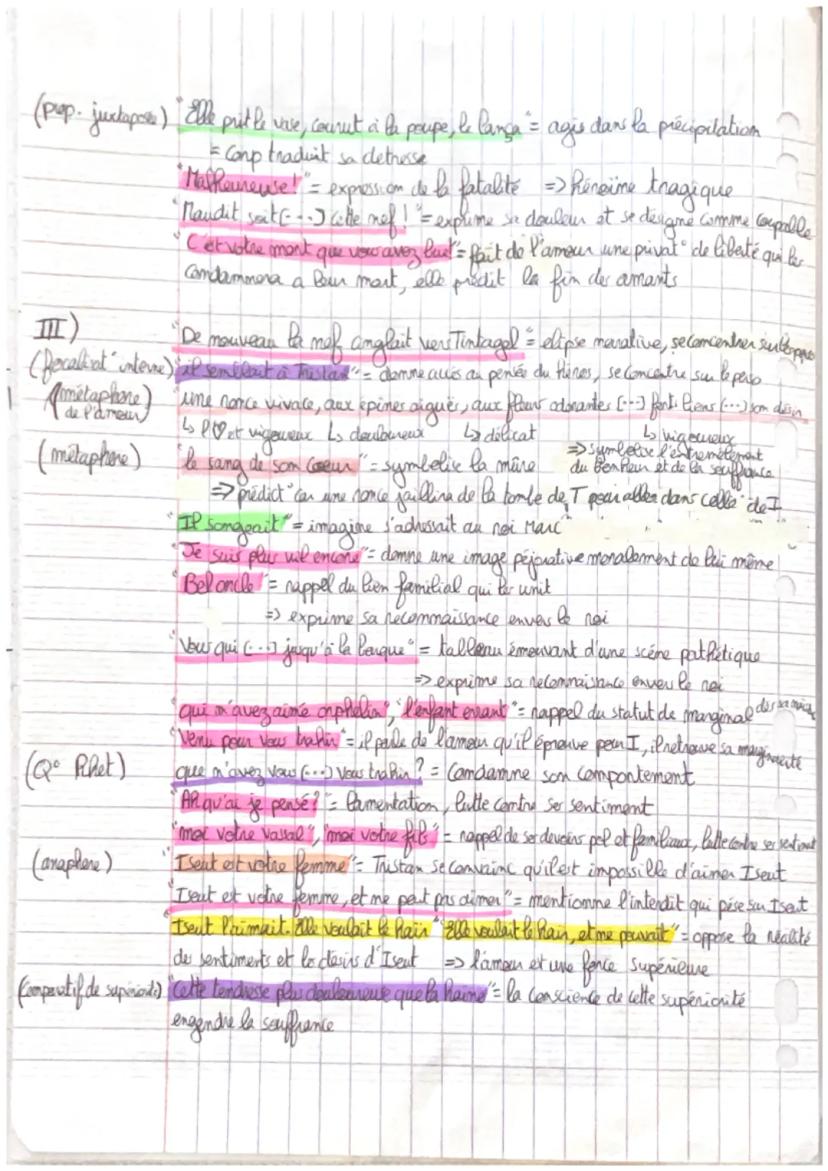 (prop. juxtaposée) "Elle prit le vase, courut à la poupe, le lança" = agis dans la précipitation
= Coup traduit sa detresse
"Malheureuse!" = expression de la fatalité => Héroïne tragique
"Maudit soit (...) cette nef!" = exprime sa douleur et se désigne comme coupable
"C'est votre mort que vous avez bue" = fait de l'amour une privat° de liberté qui les
condamnera a leur mort, elle prédit la fin des amants
III) "De nouveau la nef cinglait vers Tintagel" = elipse narrative, se concentrer sur les perso
(focalisat° interne) "il semblait à Tristan" = donne accès au pensée du héros, se concentre sur le perso
(métaphore de l'amour) "une ronce vivace, aux épines aiguës, aux fleurs odorantes (...) forts liens (...) son désir
↳ et vigoureux ↳ douloureux ↳ délicat ↳ vigoureux
(métaphore) "le sang de son coeur" = symbolise la mûre => symbolise l'entremêlement du bonheur et de la souffrance
=> prédict° car une ronce jaillira de la tombe de T pour aller dans celle de I
"Il songeait" = imagine s'adressait au roi Marc
"Je suis plus vil encore" = donne une image péjorative moralement de lui même
"Bel oncle" = rappel du lien familial qui les unit
=> exprime sa reconnaissance envers le roi
"Vous qui (...) jusqu'à la barque" = tableau émouvant d'une scène pathétique
=> exprime sa reconnaissance envers le roi
"qui m'avez aimé orphelin", "l'enfant errant" = rappel du statut de marginal
"Venu pour vous trahir" = il parle de l'amour qu'il éprouve pour I, il retrouve sa marginalité
(Q° Rhet) que n'avez vous (...) vous trahir? = Condamne son comportement
"Ah qu'ai je pensé? = lamentation, lutte contre ses sentiment
"moi votre vassal", "moi votre fils" = rappel de ses devoirs pol et familiaux, lutte contre ses sentiment
(anaphore) "Iseut est votre femme" = Tristan se convainc qu'il est impossible d'aimer Iseut
"Iseut et votre femme, et ne peut pas aimer" = mentionne l'interdit qui pèse sur Iseut
"Iseut l'aimait. Elle voulait le haïr" "Elle voulait le haïr, et ne pouvait" = oppose la réalité
des sentiments et les désirs d'Iseut => l'amour et une force supérieure
(Comparatif de supériorité) "Cette tendresse plus douloureuse que la haine" = la conscience de cette supériorité
engendre la souffrance